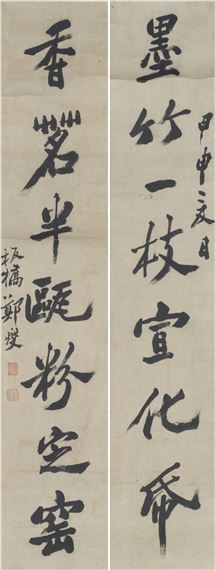 墨竹一枝宣化帋
甲申夏日
香茗半甌粉定窑
板橋鄭燮